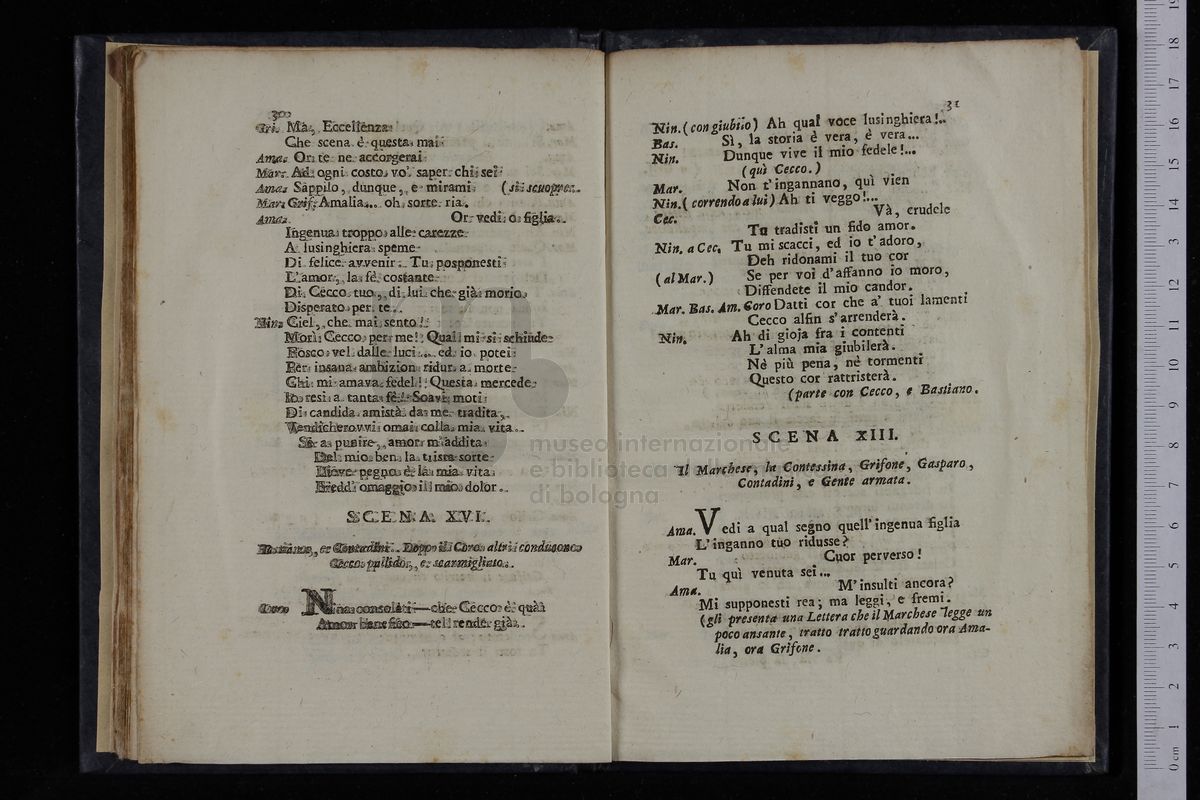 30
Gri. Mà, Eccellenza
Che scena è questa mai
Ama. Or te ne accorgerai
Mar. Ad ogni costo vo' saper chi sei
Ama. Sappilo, dunque, e mirami (si scuopre.
Mar. Grif. Amalia... oh sorte ria.
Ama. Or vedi o figlia.
Ingenua troppo alle carezze
A lusinghiera speme
Di felice avvenir. Tu posponesti
L'amor, la fè costante
Di Cecco tuo, di lui che già morio
Disperato per te.
Nin. Ciel, che mai sento!
Morì Cecco per me! Qual mi si schiude
Fosco vel dalle luci... ed io potei
Per insana ambizion ridur a morte
Chi mi amava fedel! Questa mercede
Io resi a tanta fè! Soavi moti
Di candida amistà da me tradita,
Vendicherovvi omai colla mia vita.
Se a punire, amor m'addita
Del mio ben la trista sorte
Lieve pegno è la mia vita
Fredd' omaggio il mio dolor.
SCENA XVI.
Bastiano, e Contadini. Dopo il Coro altri conducono
Cecco pallido, e scarmigliato.
Coro Nina consolati—che Cecco è quà
Amor benefico—tel rende già.
31
Nin. (con giubilo) Ah qual voce lusinghiera!..
Bas. Sì, la storia è vera, è vera...
Nin. Dunque vive il mio fedele!...
(quì Cecco.)
Mar. Non t'ingannano, quì vien
Nin. (correndo a lui) Ah ti veggo!...
Cec. Và, crudele
Tu tradisti un fido amor.
Nin. a Cec. Tu mi scacci, ed io t'adoro,
Deh ridonami il tuo cor
(al Mar.) Se per voi d'affanno io moro,
Diffendete il mio candor.
Mar. Bas. Am. Coro Datti cor che a' tuoi lamenti
Cecco alfin s'arrenderà.
Nin. Ah di gioja fra i contenti
L'alma mia giubilerà.
Nè più pena, nè tormenti
Questo cor rattristerà.
(parte con Cecco, e Bastiano.
SCENA XIII.
Il Marchese, la Contessina, Grifone, Gasparo,
Contadini, e Gente armata.
Ama. Vedi a qual segno quell'ingenua figlia
L'inganno tuo ridusse?
Mar. Cuor perverso!
Tu quì venuta sei...
Ama. M'insulti ancora?
Mi supponesti rea; ma leggi, e fremi.
(gli presenta una Lettera che il Marchese legge un
poco ansante, tratto tratto guardando ora Ama-
lia, ora Grifone.
museo internazionale
e biblioteca della
di bologna
0 cm 1 2 3 4 5 6 7 8 9 10 11 12 13 14 15 16 17 18 19